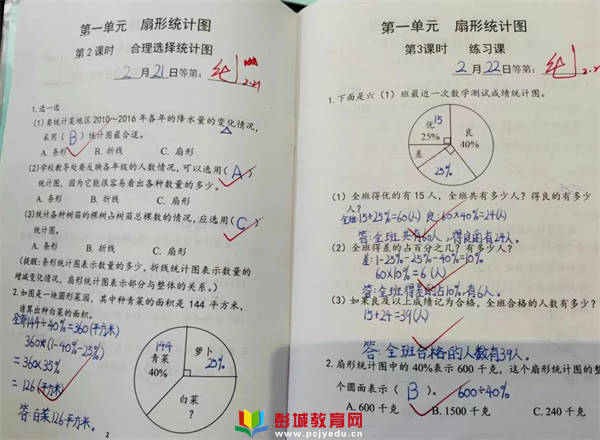 第一单元 扇形统计图
第2课时 合理选择统计图
2月21日等第: 2.21
1.选一选
(1)要统计某地区2010~2016年各年的降水量的变化情况,
采用(B)统计图最合适。
A.条形 B.折线 C.扇形
(2)学校教导处要反映各年级的人数情况,可以选用(A)
统计图,因为它能很容易看出各种数量的多少。
A.条形 B.折线 C.扇形
(3)统计各种树苗的棵树占树苗总棵数的情况,应选用(C)
统计图。
A.条形 B.折线 C.扇形
(提醒:条形统计图表示数量的多少,折线统计图表示数量的
增减变化情况,扇形统计图表示部分与整体的关系。)
2.如图是一块圆形菜园,其中种青菜的面积是144平方米,
请算出种白菜的面积。
全部144÷40%=360(平方米)
360×(1-40%-25%)
=360×35%
=126(平方米)
答:白菜126平方米。
144
青菜
40%
萝卜
25%
白菜
?
2
第一单元 扇形统计图
第3课时 练习课
2月22日等第:
1.下面是六(1)班最近一次数学测试成绩统计图。
15
优
25%
良
40%
差
25%
(1)全班得优的有15人,全班共有多少人?得良的有多少
人?
全班:15÷25%=60(人) 良:60×40%=24(人)
答:全班共有60人,得良的有24人。
(2)全班得差的占百分之几?有多少人?
差:1-25%-25%-40%=10%
60×10%=6(人)
答:全班得差的占10%,有6人。
(3)如果良及以上成绩记为合格,全班合格的人数有多少?
15+24=39(人)
答:全班合格的人数有39人。
2.扇形统计图中的40%表示600千克,这个扇形统计图的整
个圆面表示(B)。 600÷40%
A.600千克 B.1500千克 C.240千克
彭城教育网
www.pcjyedu.cn